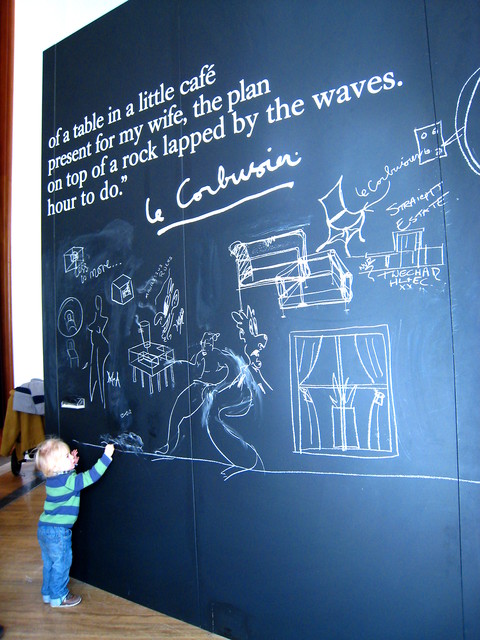 of a table in a little café
present for my wife, the plan
on top of a rock lapped by the waves.
hour to do.”
Le Corbusier.
Le Corbusier
STRAIGHT
ESTATE.
more...